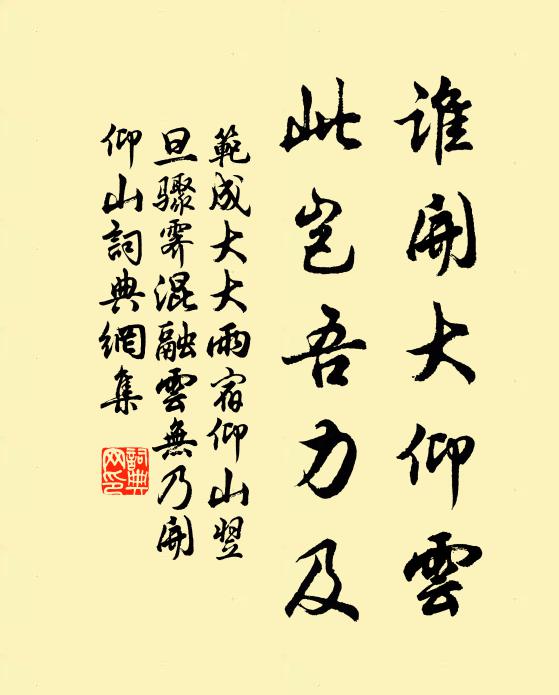 誰開大仰雲
此豈吾力及
範成大大雨宿仰山翌
旦驟霽混融雲無乃開
仰山詞典網集
詞典
网印